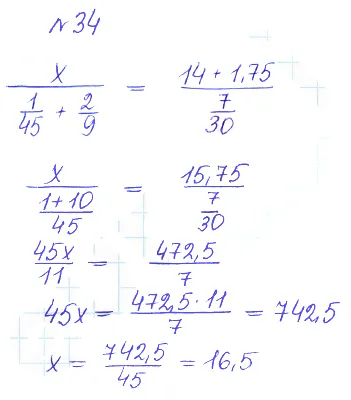 №34
x / (1/45 + 2/9) = (14 + 1,75) / (7/30)
x / ((1+10)/45) = 15,75 / (7/30)
45x/11 = 472,5/7
45x = (472,5·11)/7 = 742,5
x = 742,5/45 = 16,5